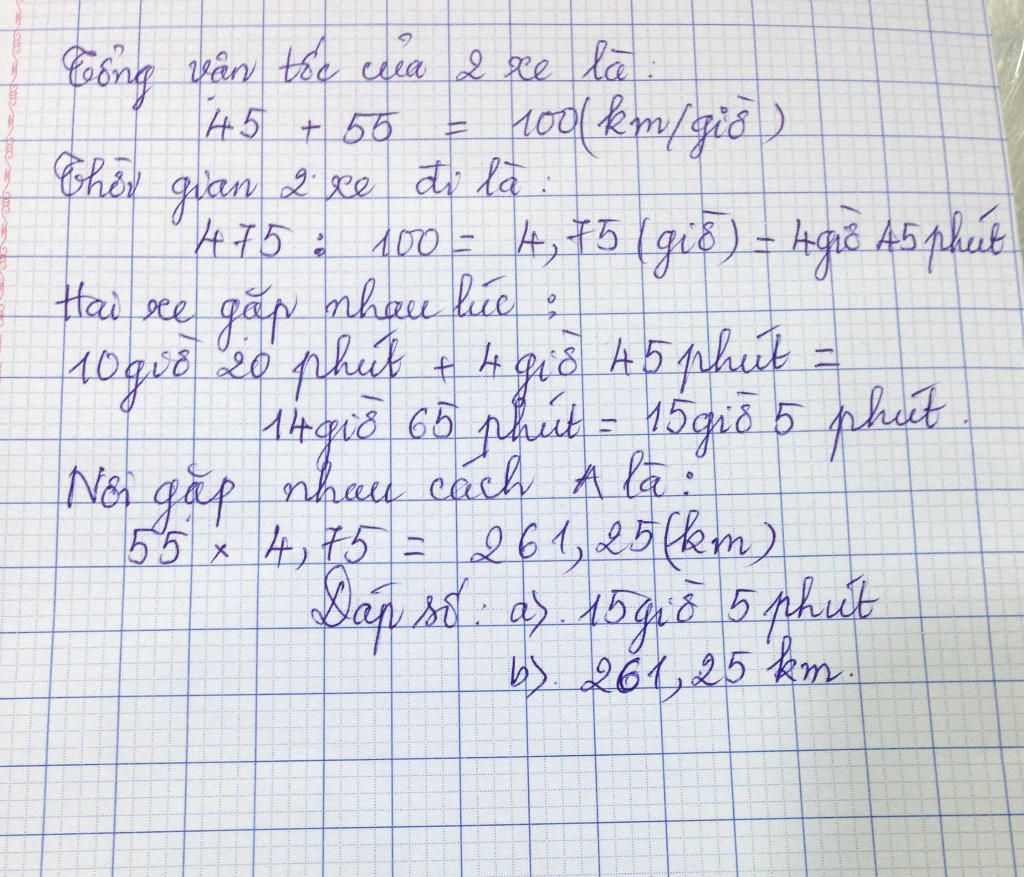 Tổng vận tốc của 2 xe là:
45 + 55 = 100 (km/giờ)
Thời gian 2 xe đi là:
475 : 100 = 4,75 (giờ) = 4 giờ 45 phút
Hai xe gặp nhau lúc:
10 giờ 20 phút + 4 giờ 45 phút =
14 giờ 65 phút = 15 giờ 5 phút.
Nơi gặp nhau cách A là:
55 × 4,75 = 261,25 (km)
Đáp số: a). 15 giờ 5 phút
b). 261,25 km.